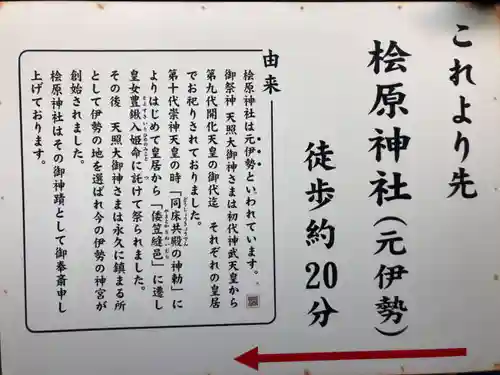 これより先
桧原神社（元伊勢）
徒歩約20分
由来
桧原神社は元伊勢といわれています。
御祭神 天照大御神さまは初代神武天皇から
第九代開化天皇の御代迄 それぞれの皇居
でお祀りされておりました。
第十代崇神天皇の時「同床共殿の神勅」に
よりはじめて皇居から「倭笠縫邑」に遷し
皇女豊鍬入姫命に託けて祭られました。
その後 天照大御神さまは永久に鎮まる所
として伊勢の地を選ばれ今の伊勢の神宮が
創始されました。
桧原神社はその御神蹟として御奉斎申し
上げております。